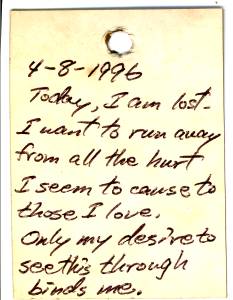 4-8-1996
Today, I am lost.
I want to run away
from all the hurt
I seem to cause to
those I love.
Only my desire to
see this through
binds me.